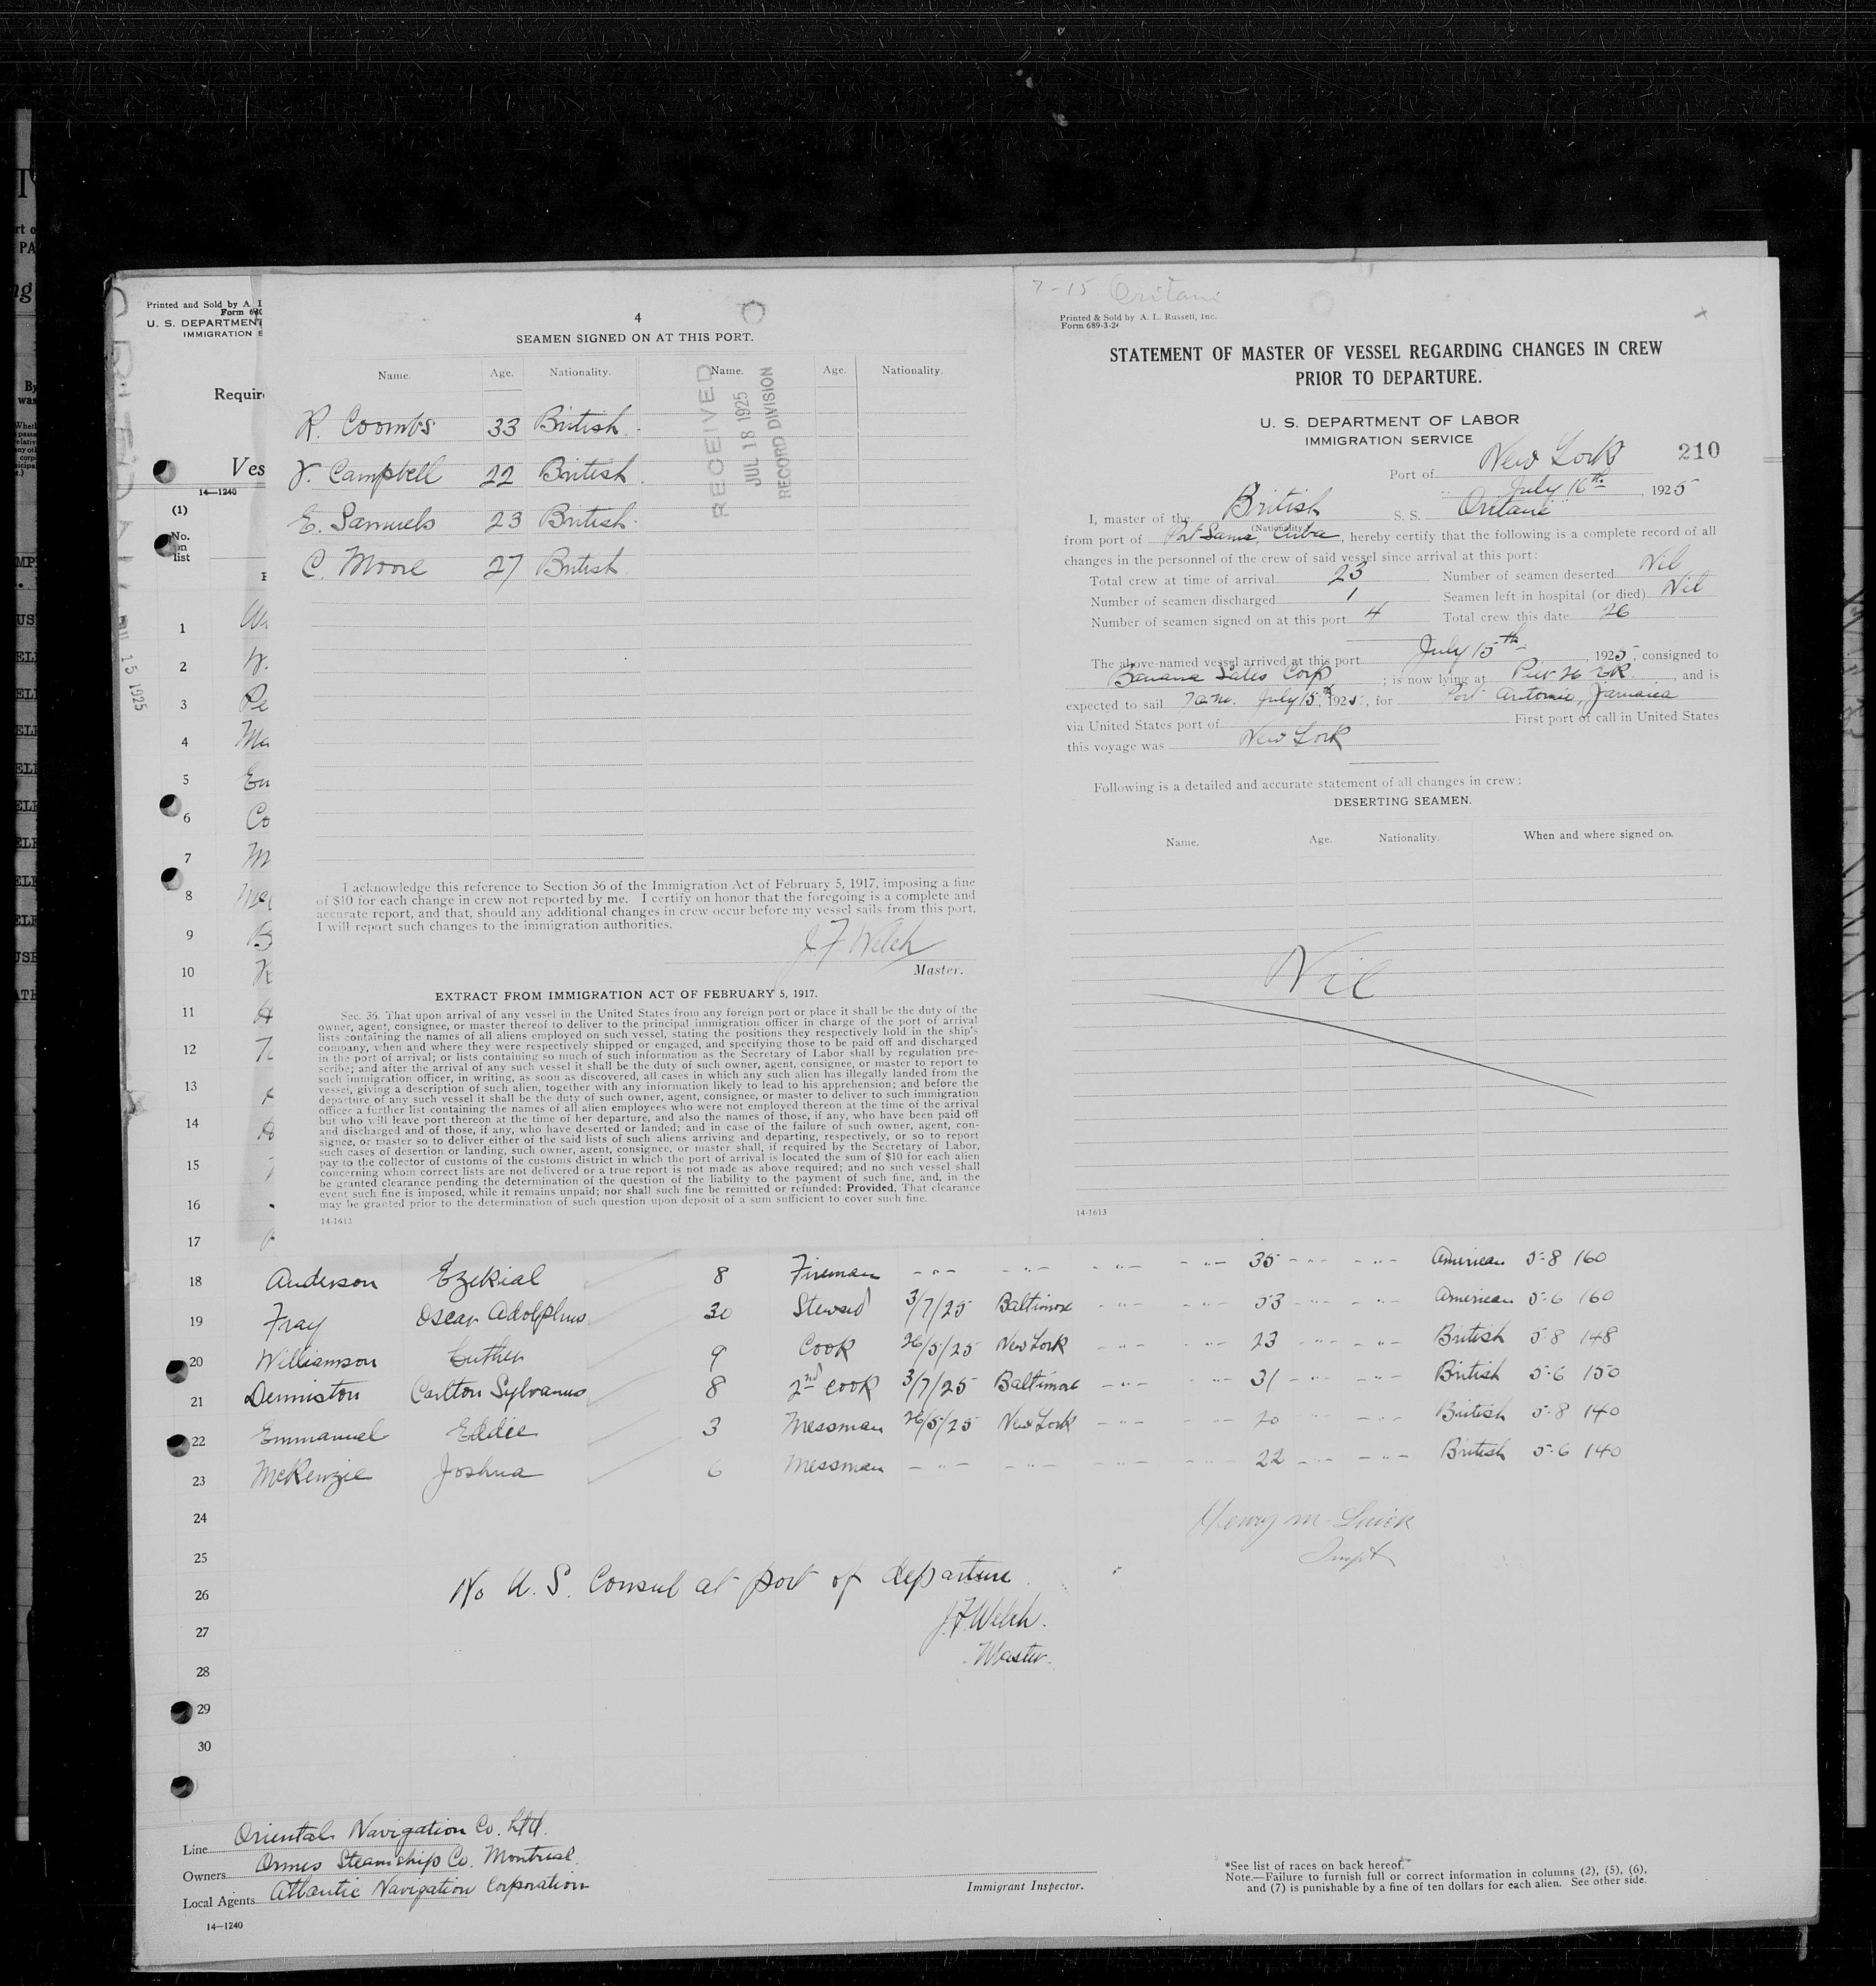 Printed and Sold by A. L
Form 680
U. S. DEPARTMENT
IMMIGRATION S
Requir
Ves
14—1240
(1)
No.
on
list
JUL 15 1925
1
2
3
4
5
6
7
8
9
10
11
12
13
14
15
16
17
4
SEAMEN SIGNED ON AT THIS PORT.
Name. Age. Nationality. Name. Age. Nationality.
RECEIVED
JUL 18 1925
RECORD DIVISION
R. Coombs 33 British
Campbell 22 British
E. Samuels 23 British
C. Moore 27 British
I acknowledge this reference to Section 36 of the Immigration Act of February 5, 1917, imposing a fine
of $10 for each change in crew not reported by me. I certify on honor that the foregoing is a complete and
accurate report, and that, should any additional changes in crew occur before my vessel sails from this port,
I will report such changes to the immigration authorities.
J F Welch
Master.
EXTRACT FROM IMMIGRATION ACT OF FEBRUARY 5, 1917.
Sec. 36. That upon arrival of any vessel in the United States from any foreign port or place it shall be the duty of the
owner, agent, consignee, or master thereof to deliver to the principal immigration officer in charge of the port of arrival
lists containing the names of all aliens employed on such vessel, stating the positions they respectively hold in the ship's
company, when and where they were respectively shipped or engaged, and specifying those to be paid off and discharged
in the port of arrival; or lists containing so much of such information as the Secretary of Labor shall by regulation pre-
scribe; and after the arrival of any such vessel it shall be the duty of such owner, agent, consignee, or master to report to
such immigration officer, in writing, as soon as discovered, all cases in which any such alien has illegally landed from the
vessel, giving a description of such alien, together with any information likely to lead to his apprehension; and before the
departure of any such vessel it shall be the duty of such owner, agent, consignee, or master to deliver to such immigration
officer a further list containing the names of all alien employees who were not employed thereon at the time of the arrival
but who will leave port thereon at the time of her departure, and also the names of those, if any, who have been paid off
and discharged and of those, if any, who have deserted or landed; and in case of the failure of such owner, agent, con-
signee, or master so to deliver either of the said lists of such aliens arriving and departing, respectively, or so to report
such cases of desertion or landing, such owner, agent, consignee, or master shall, if required by the Secretary of Labor,
pay to the collector of customs of the customs district in which the port of arrival is located the sum of $10 for each alien
concerning whom correct lists are not delivered or a true report is not made as above required; and no such vessel shall
be granted clearance pending the determination of the question of the liability to the payment of such fine, and, in the
event such fine is imposed, while it remains unpaid; nor shall such fine be remitted or refunded: Provided, That clearance
may be granted prior to the determination of such question upon deposit of a sum sufficient to cover such fine.
14-1613
7-15 Oritani
Printed & Sold by A. L. Russell, Inc.
Form 689-3-24
STATEMENT OF MASTER OF VESSEL REGARDING CHANGES IN CREW
PRIOR TO DEPARTURE.
U. S. DEPARTMENT OF LABOR
IMMIGRATION SERVICE
210
Port of New York
July 16th, 1925
I, master of the British S. S. "Oritani"
(Nationality)
from port of Port Sama, Cuba, hereby certify that the following is a complete record of all
changes in the personnel of the crew of said vessel since arrival at this port:
Total crew at time of arrival 23 Number of seamen deserted Nil
Number of seamen discharged 1 Seamen left in hospital (or died) Nil
Number of seamen signed on at this port 4 Total crew this date 26
The above-named vessel arrived at this port July 15th, 1925, consigned to
Banana Sales Corp; is now lying at Pier 26 E.R., and is
expected to sail 7 a.m. July 15th, 1925, for Port Antonio, Jamaica
via United States port of First port of call in United States
this voyage was New York
Following is a detailed and accurate statement of all changes in crew:
DESERTING SEAMEN.
Name. Age. Nationality. When and where signed on.
Nil
14-1613
18 Anderson Ezekial 8 Fireman - " - - " - - " - - " - 35 - " - - " - American 5-8 160
19 Fray Oscar Adolphus 30 Steward 3/7/25 Baltimore - " - - " - 53 - " - - " - American 5-6 160
20 Williamson Luther 9 Cook 26/5/25 New York - " - - " - 23 - " - - " - British 5-8 148
21 Denniston Carlton Sylvanus 8 2nd cook 3/7/25 Baltimore - " - - " - 31 - " - - " - British 5-6 150
22 Emmanuel Eddie 3 Messman 26/5/25 New York - " - - " - 20 - " - - " - British 5-8 140
23 McKenzie Joshua 6 Messman - " - - " - - " - - " - 22 - " - - " - British 5-6 140
24
25
26
27
28
29
30
Henry M.
Inspt
No U. S. Consul at port of departure
J.F. Welch.
Master.
Line Oriental Navigation Co. Ltd.
Owners Ormes Steamship Co. Montreal.
Local Agents Atlantic Navigation Corporation
14—1240
Immigrant Inspector.
*See list of races on back hereof.
Note.—Failure to furnish full or correct information in columns (2), (5), (6),
and (7) is punishable by a fine of ten dollars for each alien. See other side.